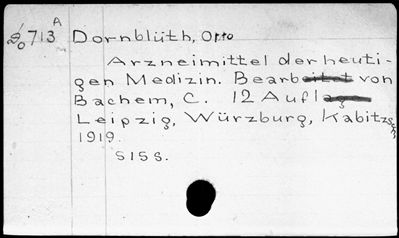 713 A Dornblüth, Otto
Arzneimittel der heuti-
gen Medizin. Bearb von
Bachem, C. 12 Aufl
Leipzig, Würzburg, Kabitzsch,
1919.
515 S.